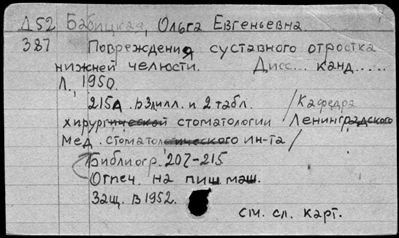 Д52 Бабицкая, Ольга Евгеньевна.
387 Повреждения суставного отростка
нижней челюсти. Дисс... канд.....
Л., 1950.
215л. в 3 илл. и 2 табл. /Кафедра
хирургической стоматологии / Ленинградского
мед. стоматологического ин-та/
Библиогр. 207-215
Отпеч. на пиш. маш.
Защ. в 1952.
см. сл. карт.